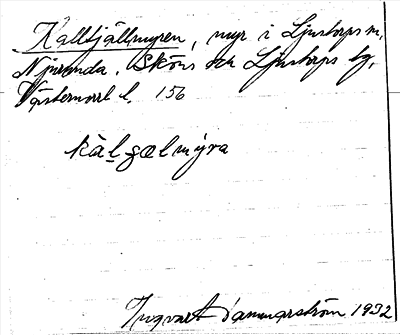 Kalltjällmyren, myr i Ljustorps sn,
Njurunda, Sköns och Ljustorps tg,
Västernorrl. l. 156
kàlʒælmýra
Ingvart Dammarström 1932